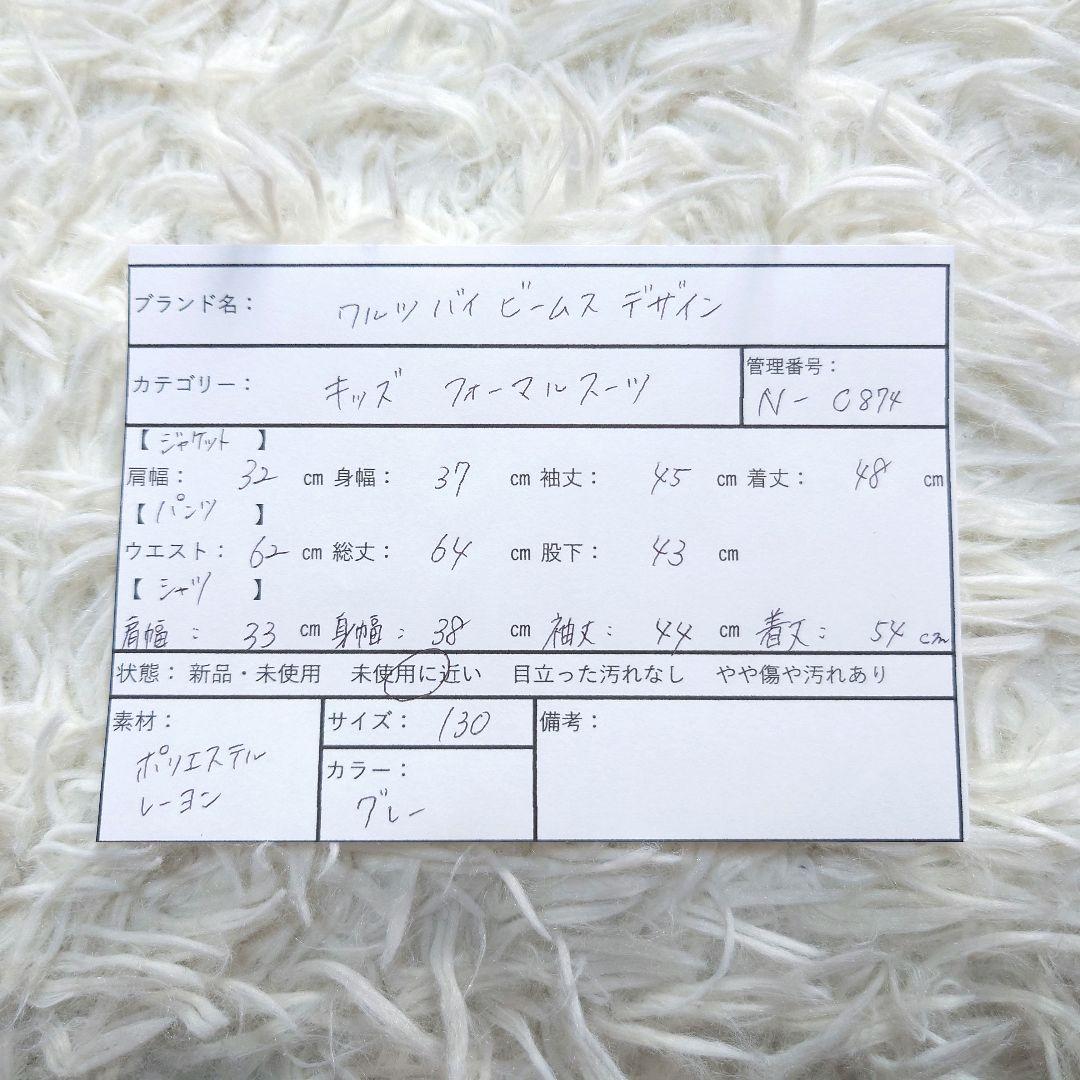 ブランド名： ワルツ バイ ビームス デザイン
カテゴリー： キッズ フォーマルスーツ
管理番号：
N- C874
【 ジャケット 】
肩幅： 32 cm 身幅： 37 cm 袖丈： 45 cm 着丈： 48 cm
【 パンツ 】
ウエスト： 62 cm 総丈： 64 cm 股下： 43 cm
【 シャツ 】
肩幅： 33 cm 身幅： 38 cm 袖丈： 44 cm 着丈： 54 cm
状態： 新品・未使用 未使用に近い 目立った汚れなし やや傷や汚れあり
素材：
ポリエステル
レーヨン
サイズ： 130
カラー：
グレー
備考：